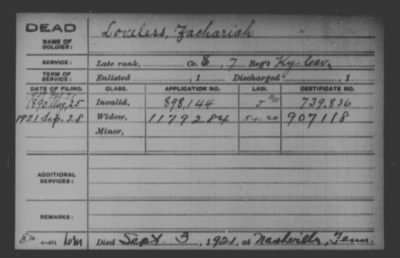 DEAD
NAME OF SOLDIER: Loveless, Zachariah
SERVICE: Late rank, Co. E, 7 Reg't Ky. Cav.
TERM OF SERVICE: Enlisted , 1 Discharged , 1
DATE OF FILING. CLASS. APPLICATION NO. LAW. CERTIFICATE NO.
1890 Aug. 25 Invalid, 898,144 739,836
1921 Sep. 28 Widow, 1179284 907118
Minor,
ADDITIONAL SERVICES:
REMARKS:
Died Sept. 3, 1921, at Nashville, Tenn.